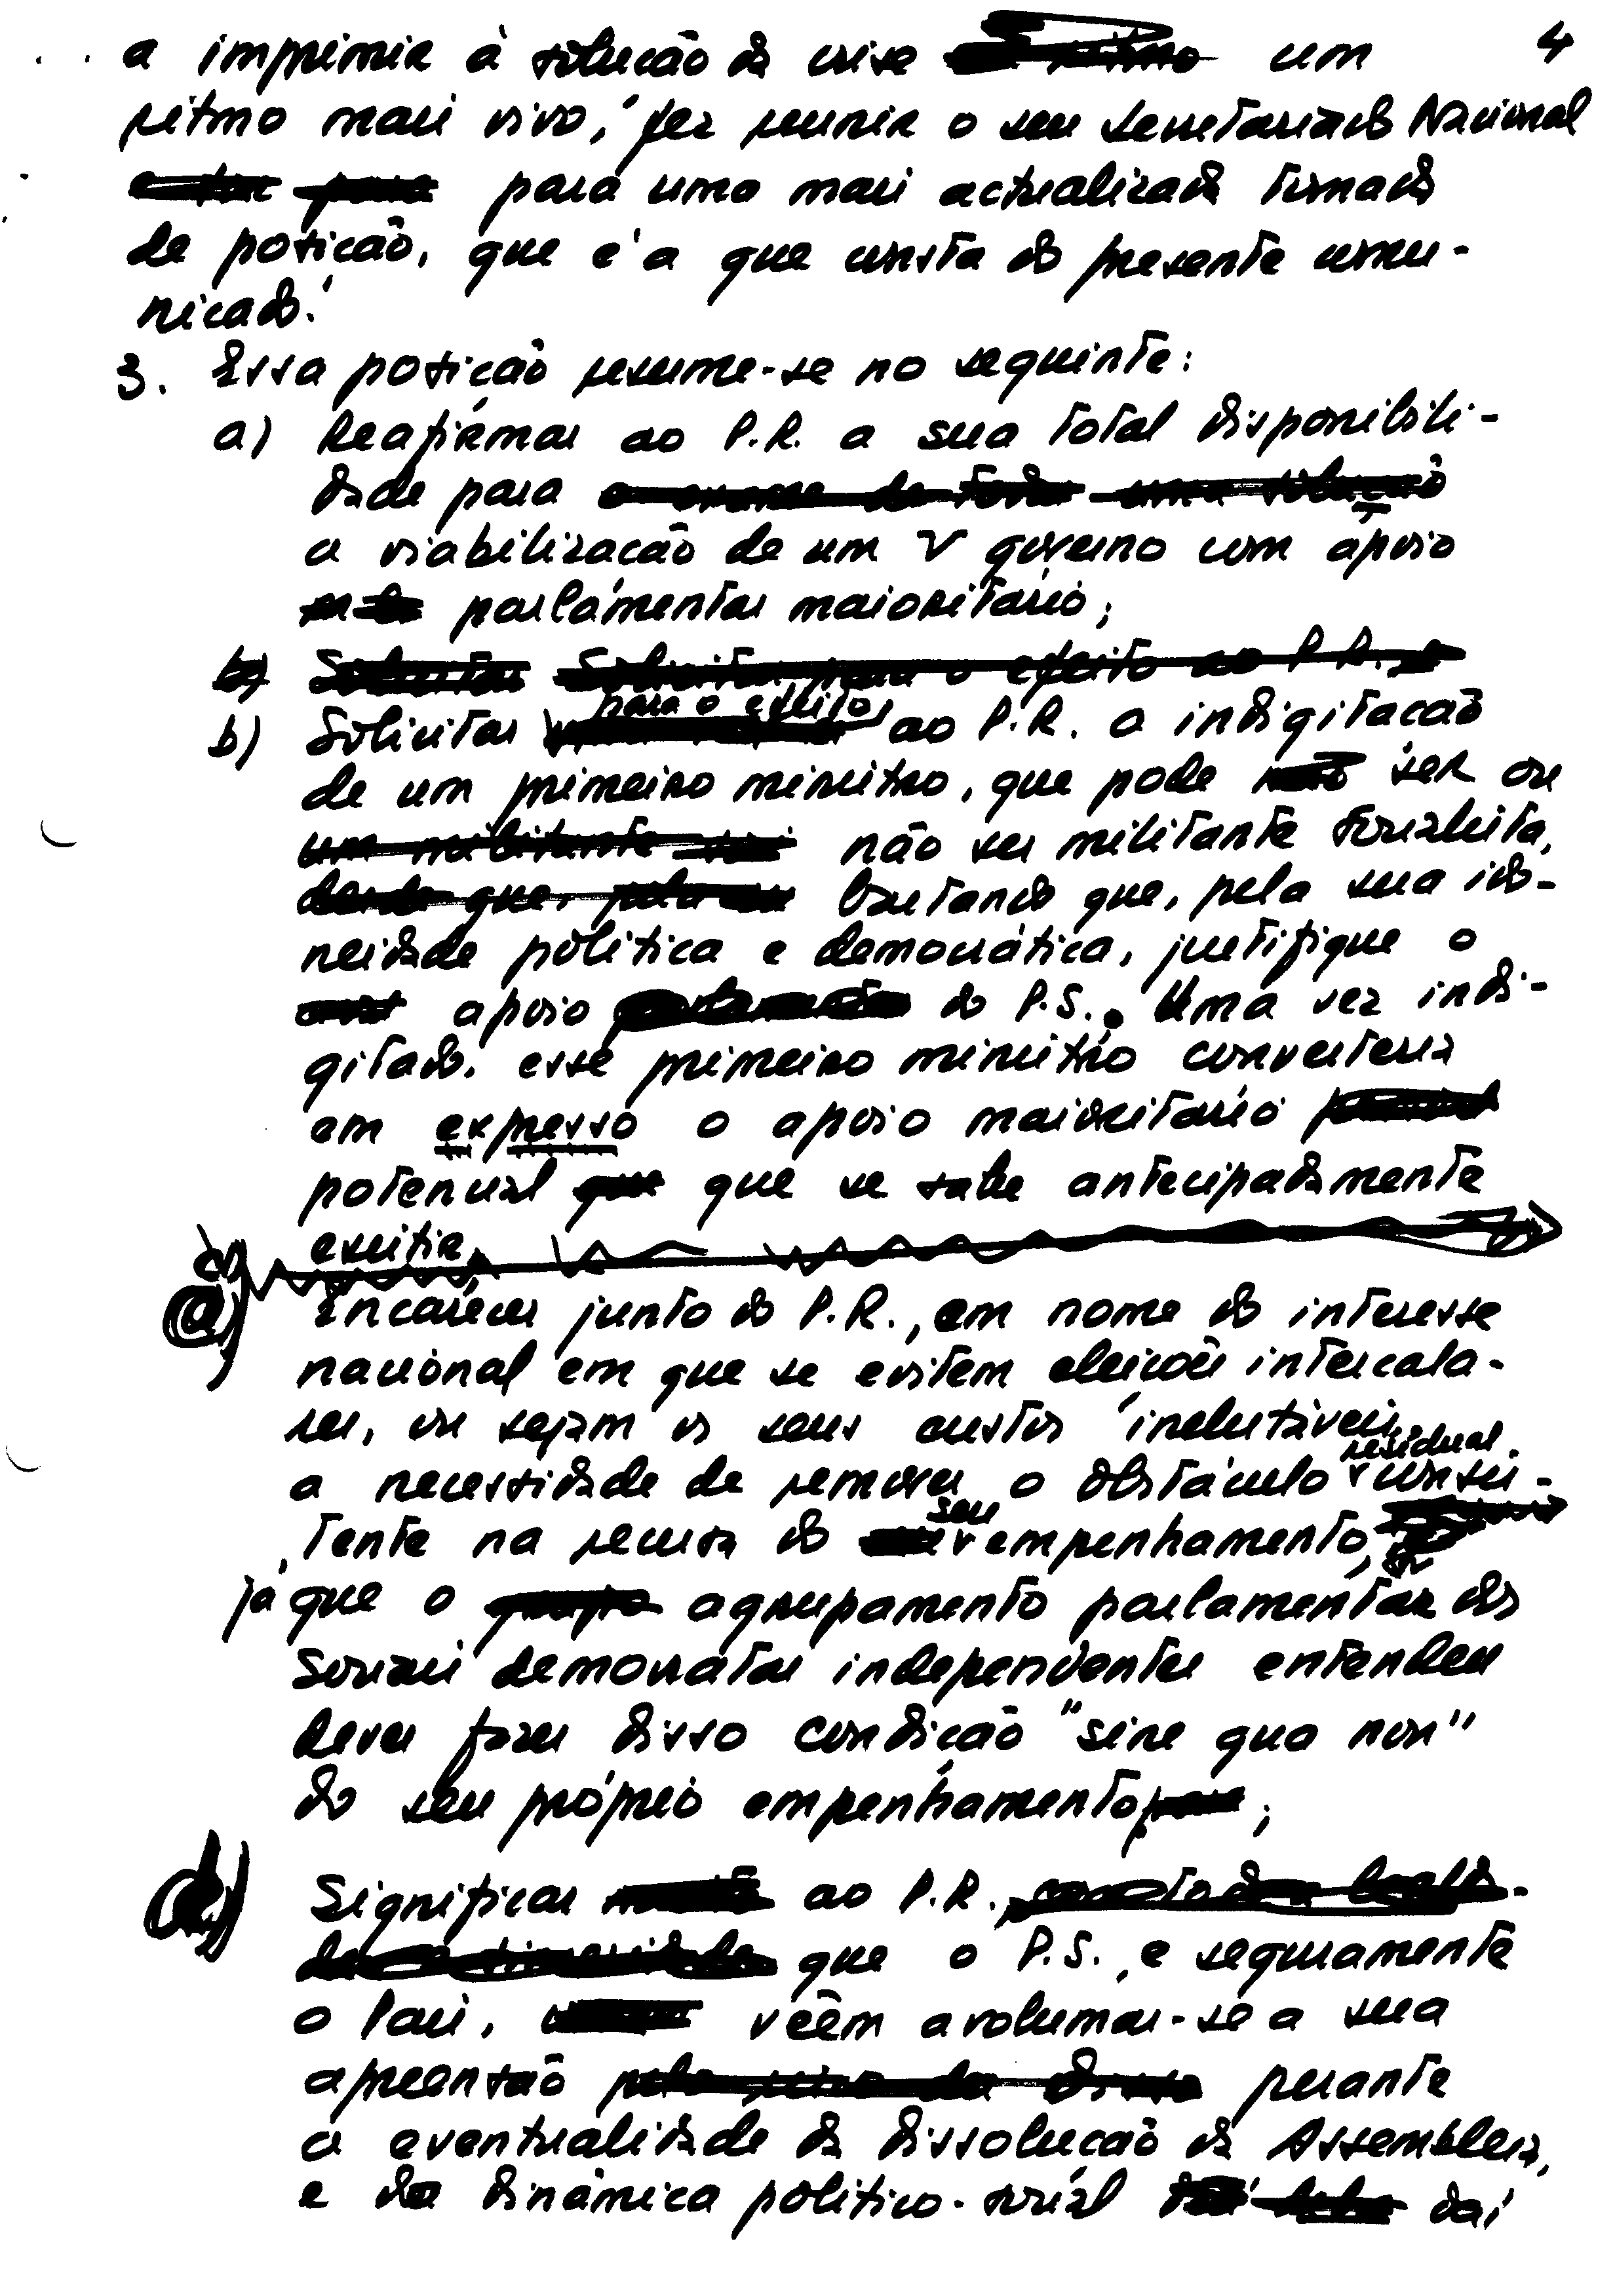 4
a imprimir à solução da crise um
ritmo mais vivo, fez reunir o seu Secretariado Nacional
para uma mais actualizada tomada
de posição, que é a que consta do presente comu-
nicado.
3. Essa posição resume-se no seguinte:
a) Reafirmar ao P.R. a sua total disponibili-
dade para
a viabilização de um V governo com apoio
parlamentar maioritário;
b) Solicitar para o efeito ao P.R. a indigitação
de um primeiro ministro, que pode ser ou
não ser militante socialista,
bastando que, pela sua ido-
neidade política e democrática, justifique o
apoio do P.S.. Uma vez indi-
gitado, esse primeiro ministro converteria
em expresso o apoio maioritário
potencial que se sabe antecipadamente
existir.
c) Encarecer junto do P.R., em nome do interesse
nacional em que se evitem eleições intercala-
res, ou sejam os seus custos inelutáveis,
a necessidade de remover o obstáculo residual consis-
tente na recusa do seu empenhamento,
já que o agrupamento parlamentar dos
Sociais democratas independentes entendeu
dever fazer disso condição "sine qua non"
do seu próprio empenhamento;
d) Significar ao P.R.,
que o P.S., e seguramente
o País, vêem avolumar-se a sua
apreensão perante
a eventualidade da dissolução da Assembleia,
e da dinâmica político-social daí